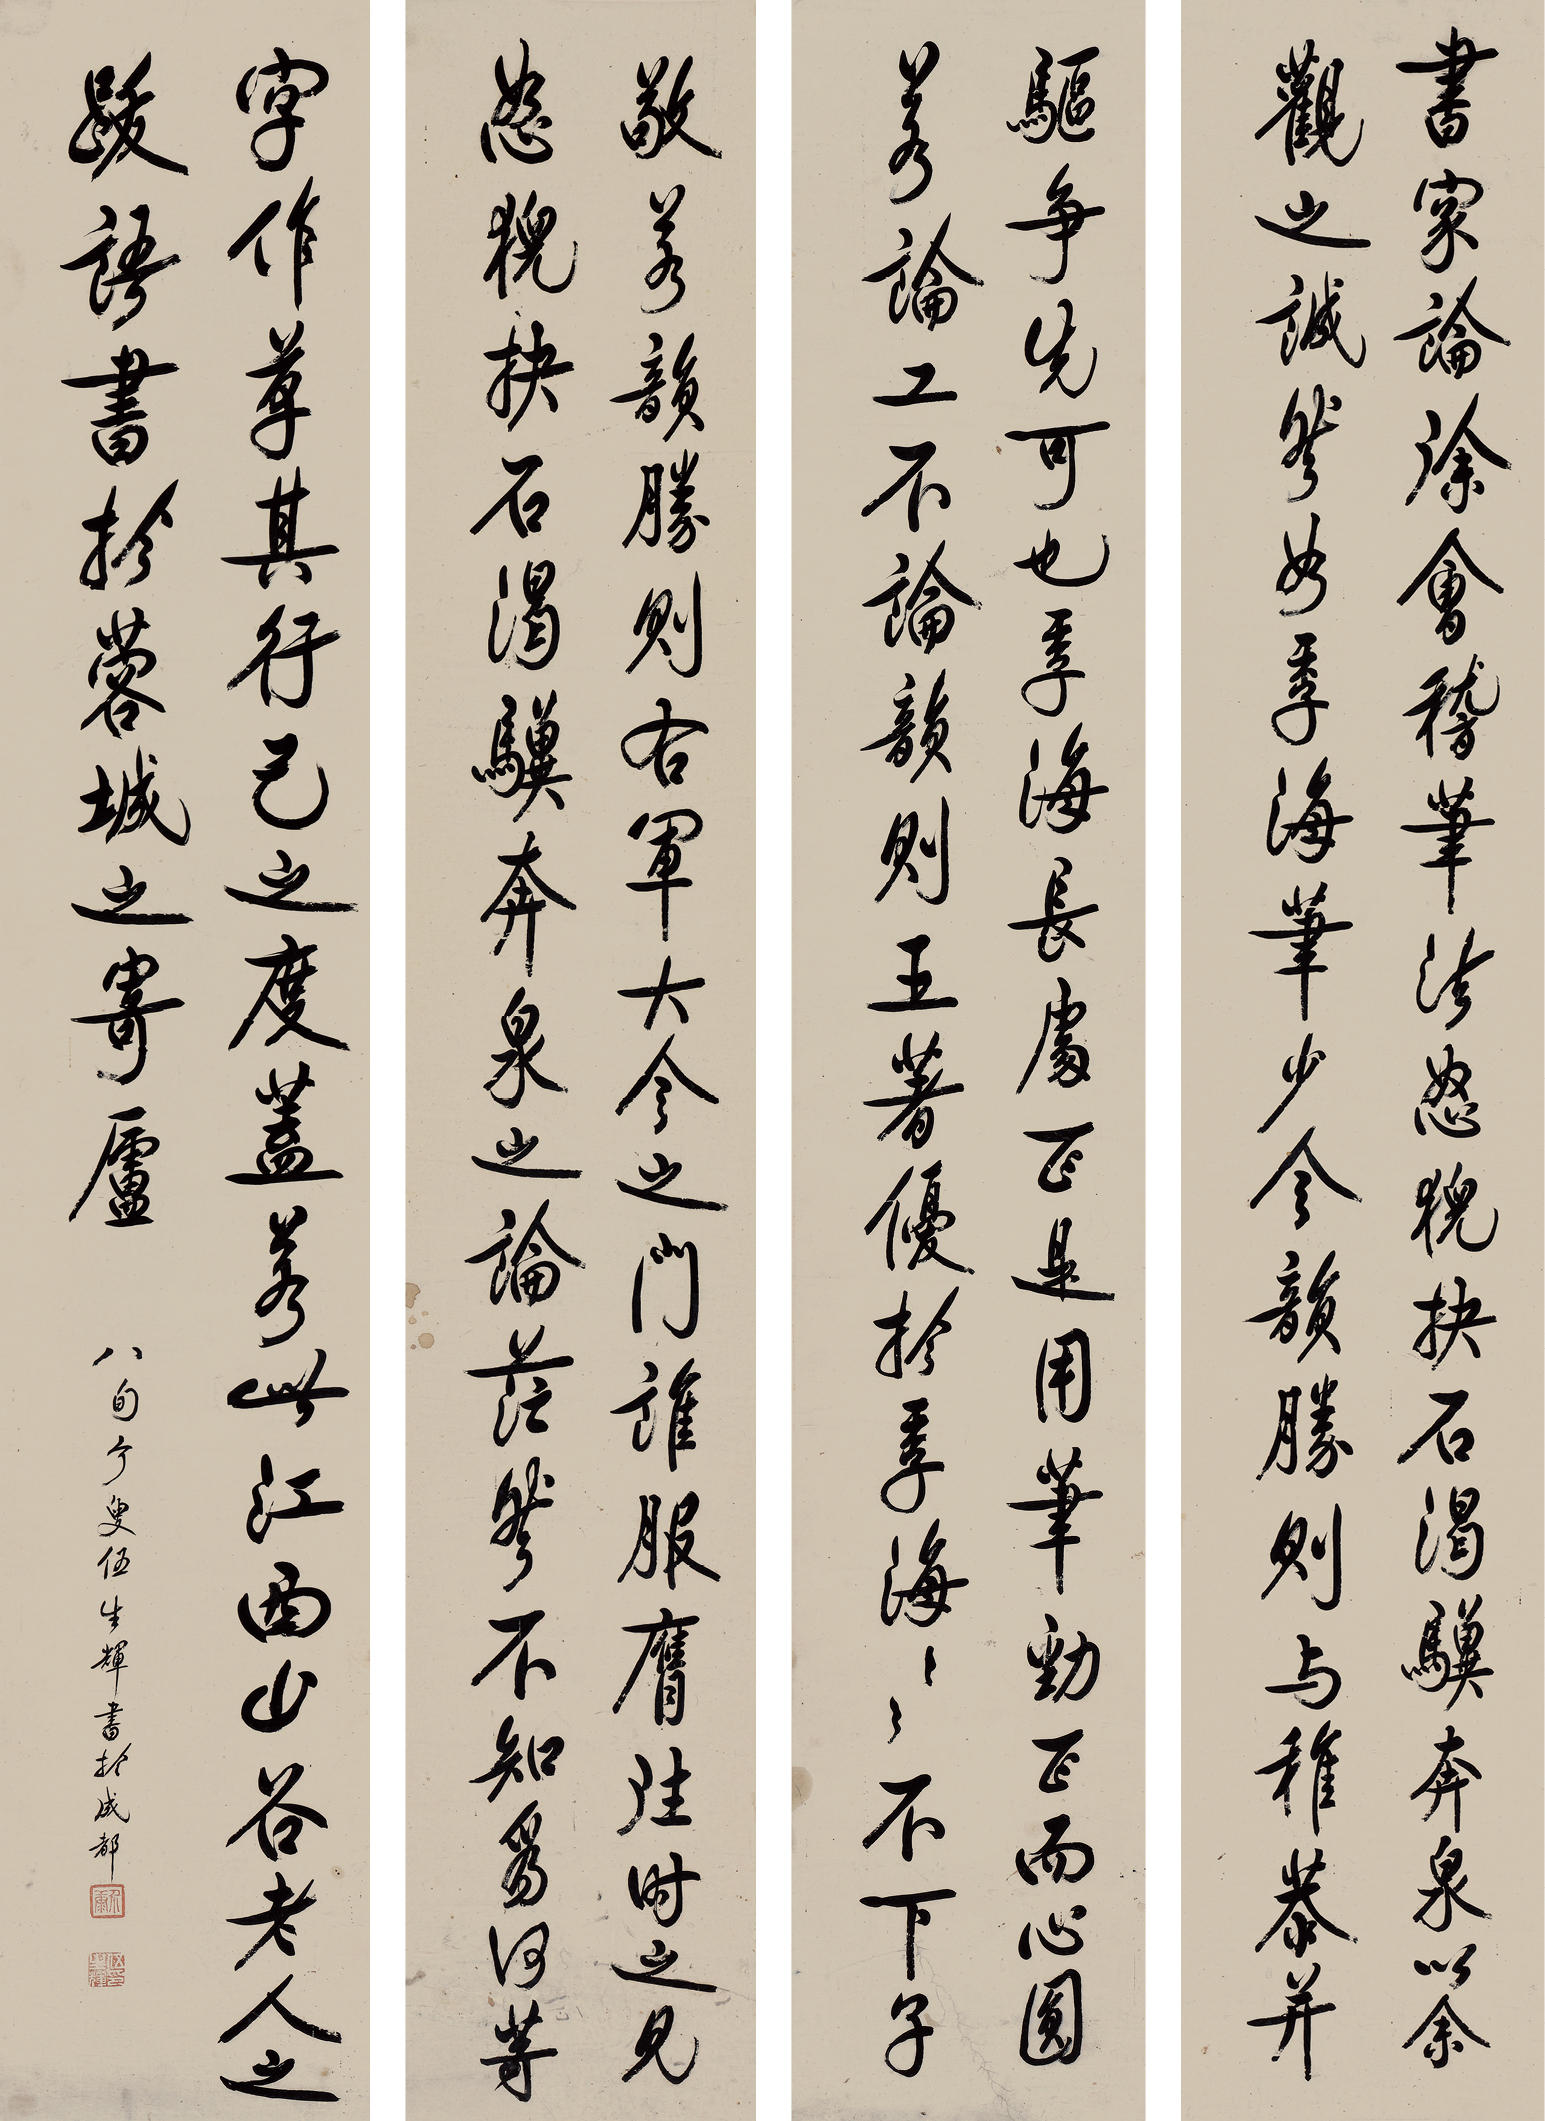 書家論徐會稽筆法怒猊抉石渴驥奔泉以余
觀之誠然如季海筆少令韻勝則与稚恭并
驅争先可也季海長處正是用筆勁正而心圓
若論工不論韻則王著優於季海〻〻不下子
敬若韻勝則右軍大令之門誰服膺往時之見
怒猊抉石渴驥奔泉之論茫然不知為何等
字作草其行己之度蓋若此江西山谷老人之
跋語書於蓉城之寄廬
八旬介叟伍生輝書於成都